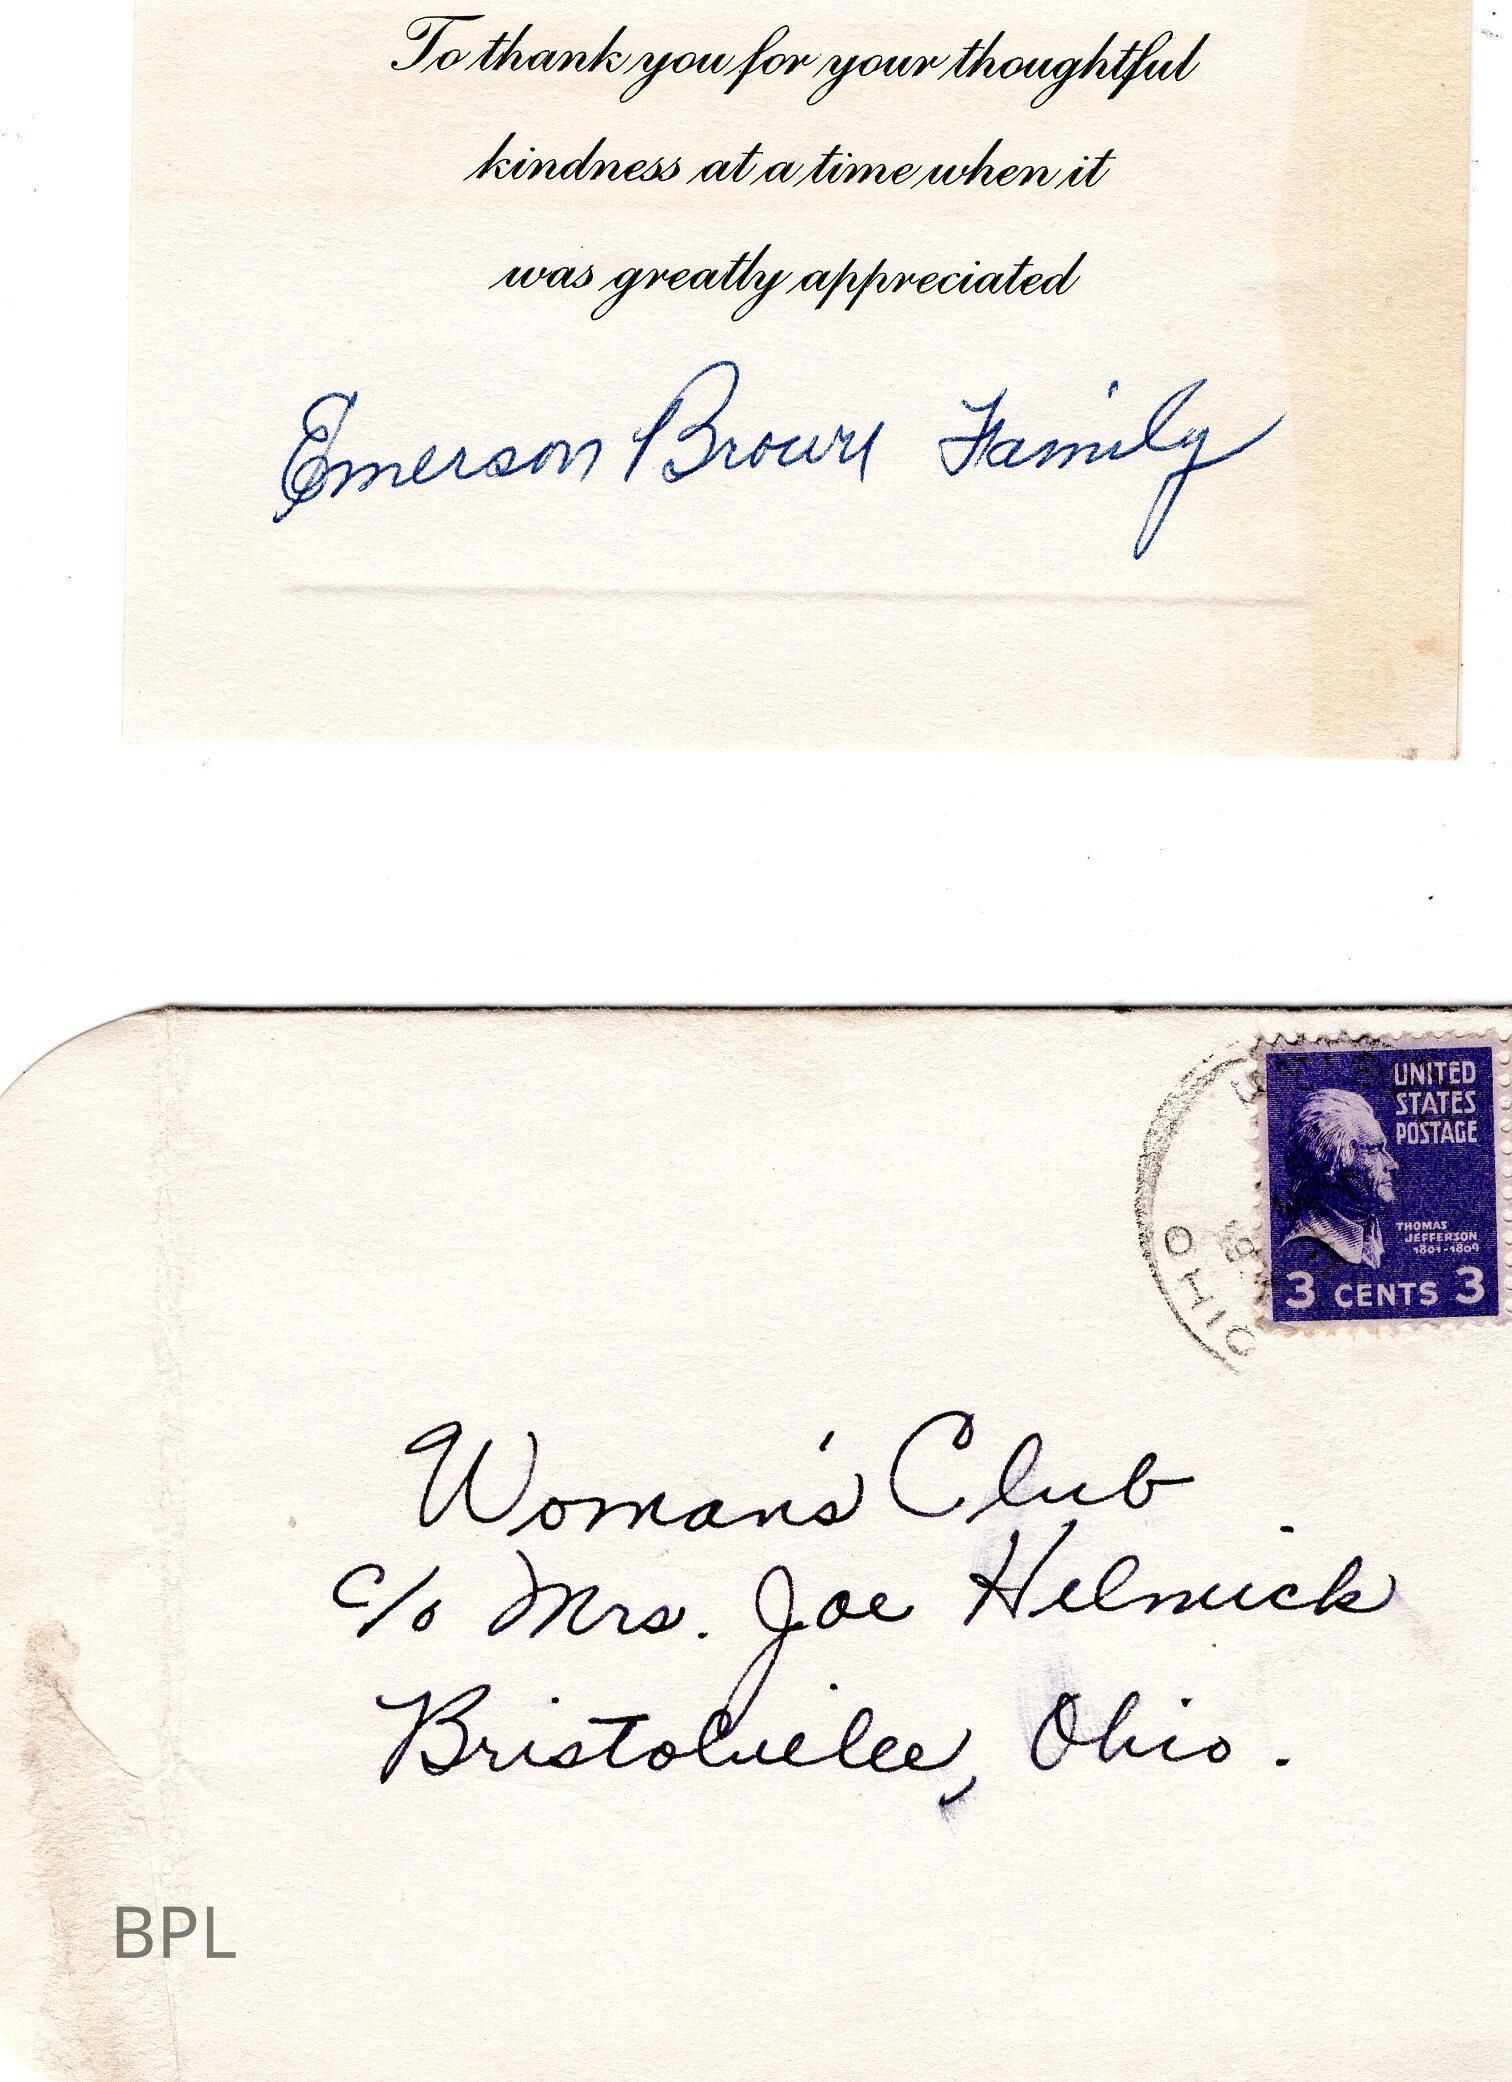 To thank you for your thoughtful
kindness at a time when it
was greatly appreciated
Emerson Brown Family
UNITED
STATES
POSTAGE
THOMAS
JEFFERSON
1801-1809
3 CENTS 3
OHIO
Woman's Club
c/o Mrs. Joe Helmick
Bristolville, Ohio.
BPL